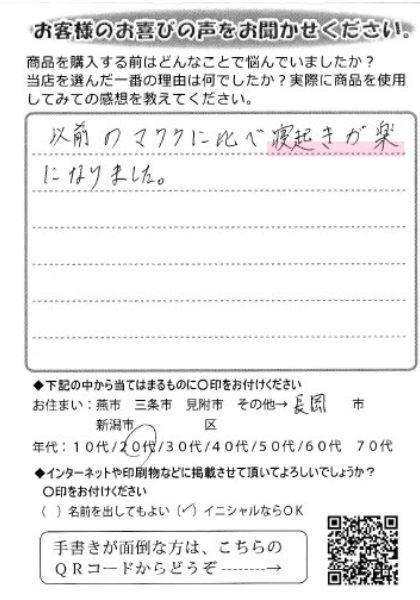 お客様のお喜びの声をお聞かせください。
商品を購入する前はどんなことで悩んでいましたか？
当店を選んだ一番の理由は何でしたか？実際に商品を使用
してみての感想を教えてください。
以前のマクラに比べ寝起きが楽
になりました。
◆下記の中から当てはまるものに〇印をお付けください
お住まい：燕市　三条市　見附市　その他→ 長岡　市
新潟市　　　　　区
年代：１０代/２０代/３０代/４０代/５０代/６０代　７０代
◆インターネットや印刷物などに掲載させて頂いてよろしいでしょうか？
〇印をお付けください
（　）名前を出してもよい（✓）イニシャルならＯＫ
手書きが面倒な方は、こちらの
ＱＲコードからどうぞ--------→